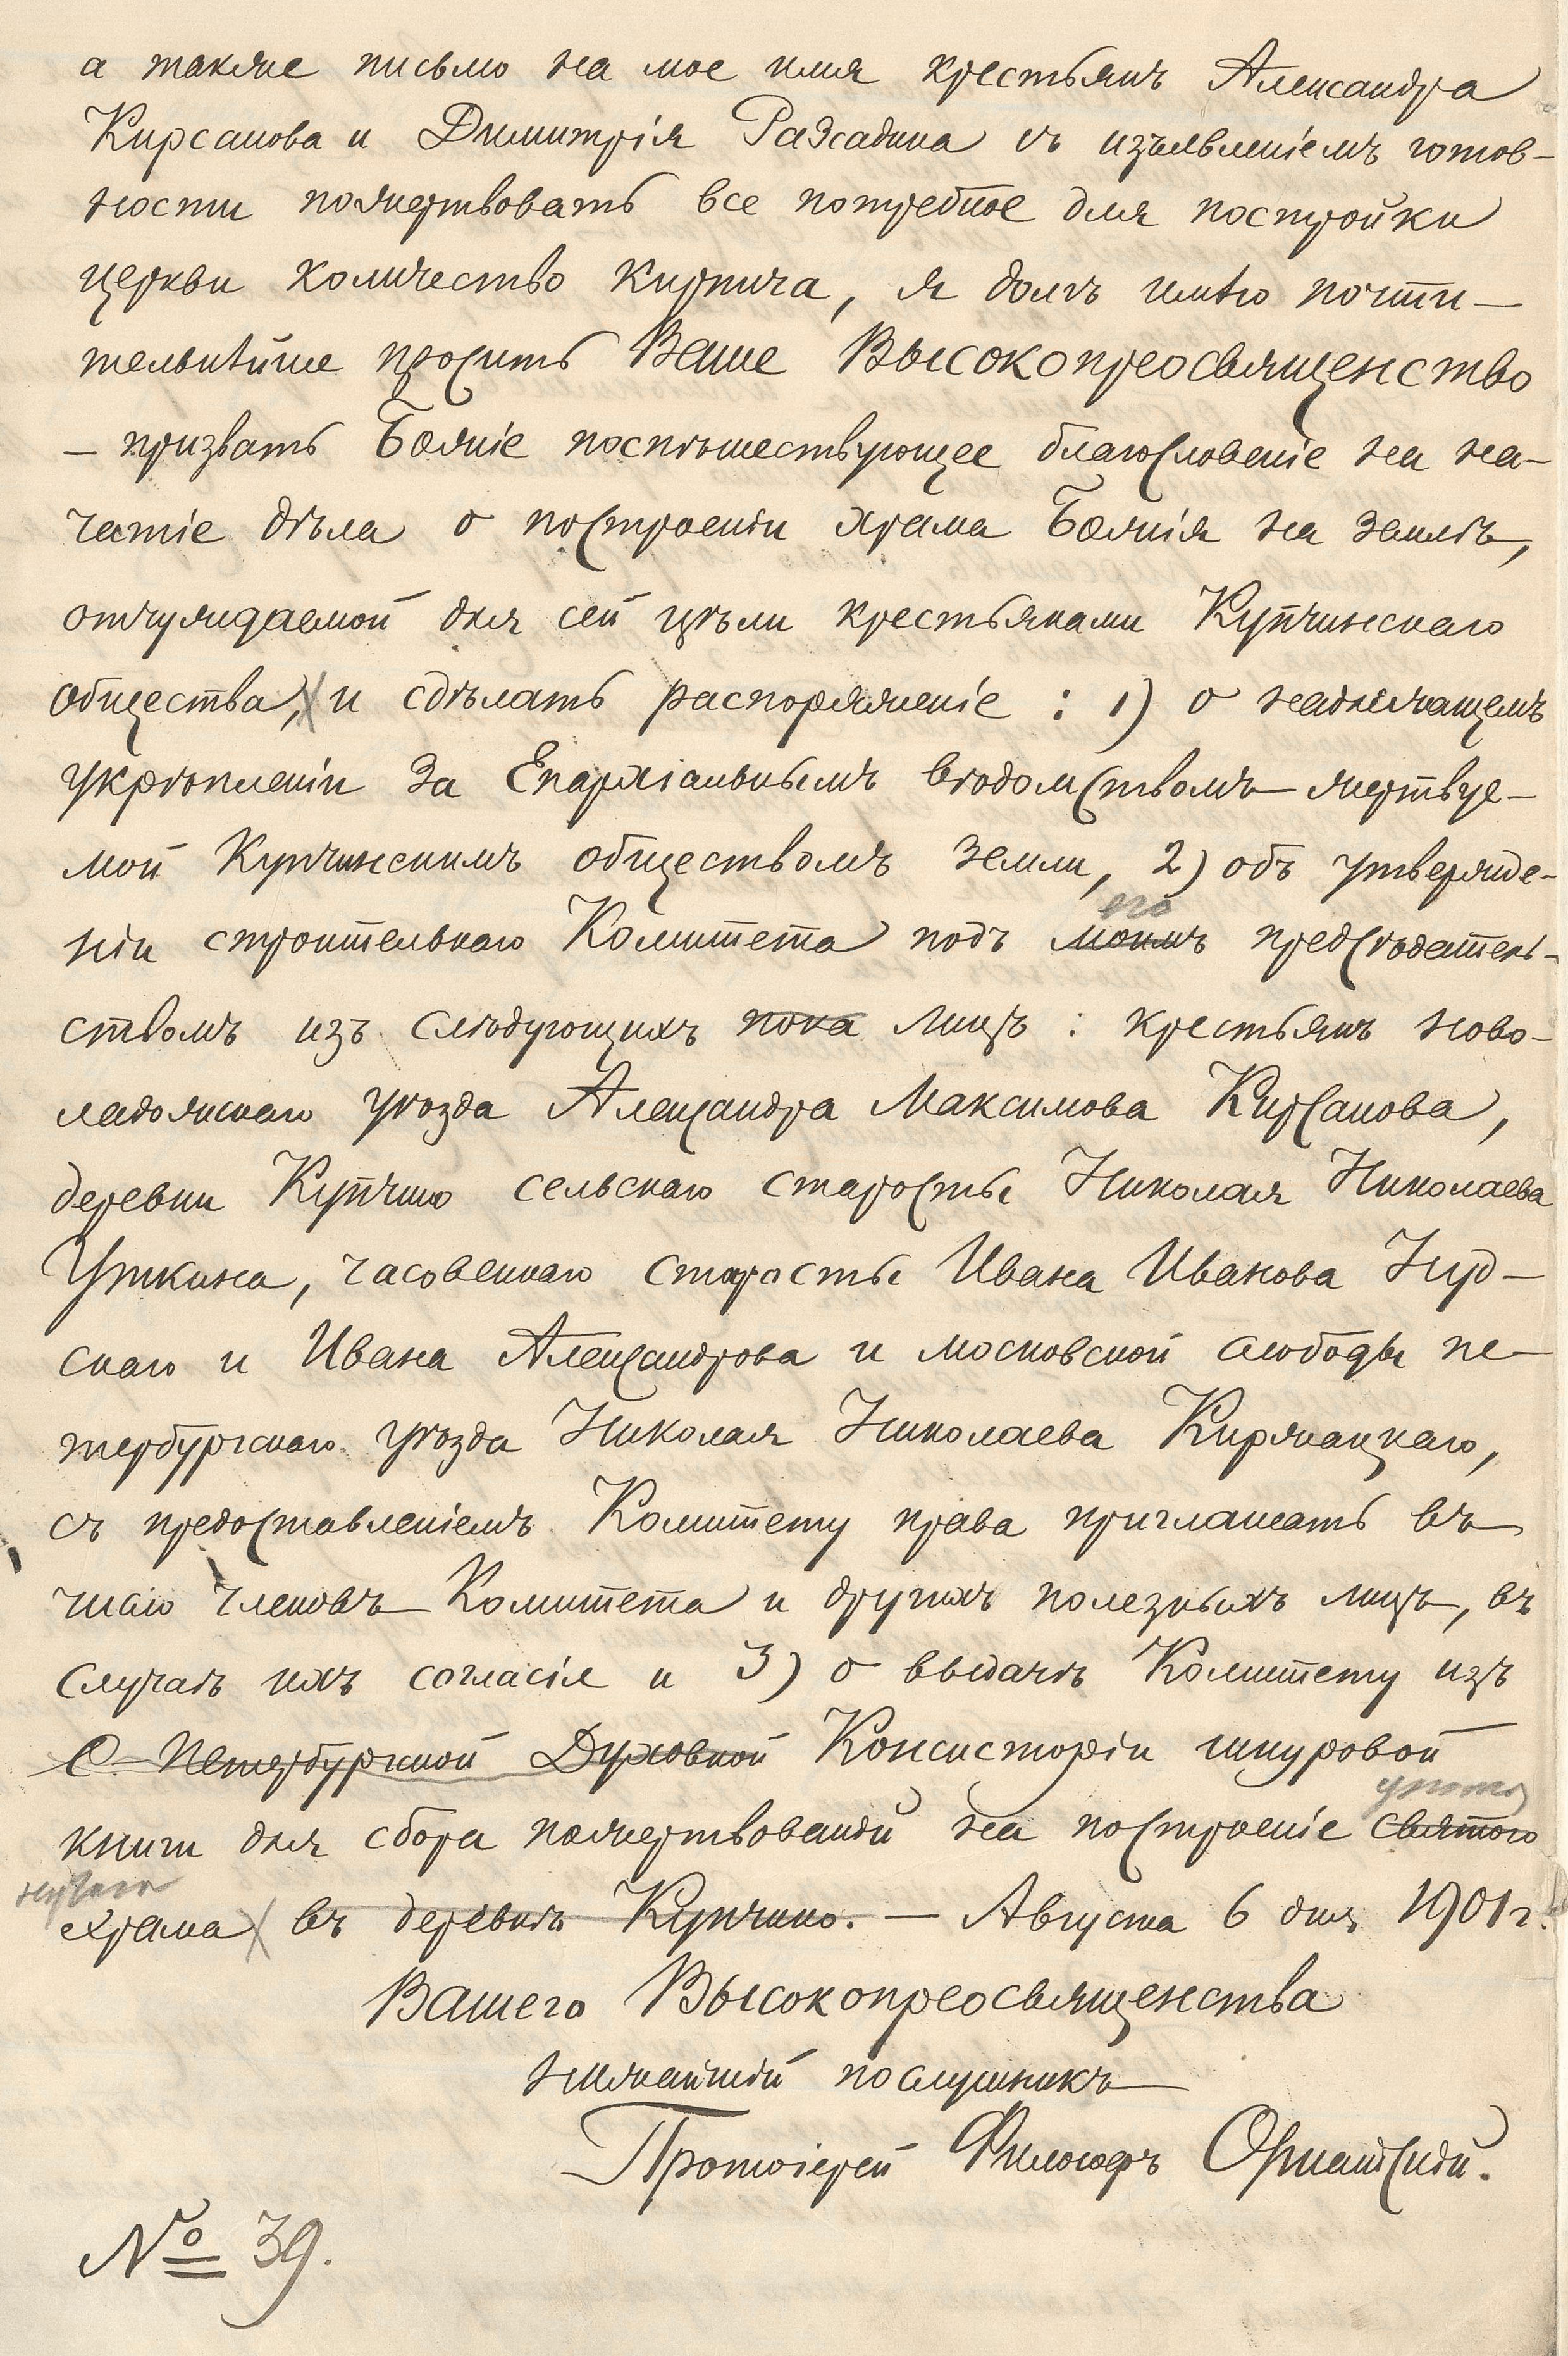 а также письмо на мое имя крестьянъ Александра
Кирсанова и Димитрія Разсадина съ изъявленіемъ готов-
ности пожертвовать все потребное для постройки
церкви количество кирпича, я долгъ имѣю почти-
тельнѣйше просить Ваше Высокопреосвященство
— призвать Божіе поспѣшествующее благословеніе на на-
чатіе дѣла о построеніи храма Божія на землѣ,
отчуждаемой для сей цѣли крестьянами Купчинскаго
общества, и сдѣлать распоряженіе: 1) о надлежащемъ
укрѣпленіи за Епархіальнымъ вѣдомствомъ жертвуе-
мой Купчинскимъ обществомъ земли, 2) объ утвержде-
его
ніи строительнаго Комитета подъ моимъ предсѣдатель-
ствомъ изъ слѣдующихъ пока лицъ: крестьянъ ново-
ладожскаго уѣзда Александра Максимова Кирсанова,
деревни Купчино сельскаго старосты Николая Николаева
Уткина, часовеннаго старосты Ивана Иванова
скаго и Ивана Александрова и московской слободы пе-
тербургскаго уѣзда Николая Николаева
съ предоставленіемъ Комитету права приглашать въ
число членовъ Комитета и другихъ полезныхъ лицъ, въ
случаѣ ихъ согласія и 3) о выдачѣ Комитету изъ
С. Петербургской Духовной Консисторіи шнуровой
книги для сбора пожертвованій на построеніе святого
храма въ деревнѣ Купчино. — Августа 6 дня 1901 г.
Вашего Высокопреосвященства
нижайшій послушникъ
Протоіерей Философъ Орнатскій.
№ 39.